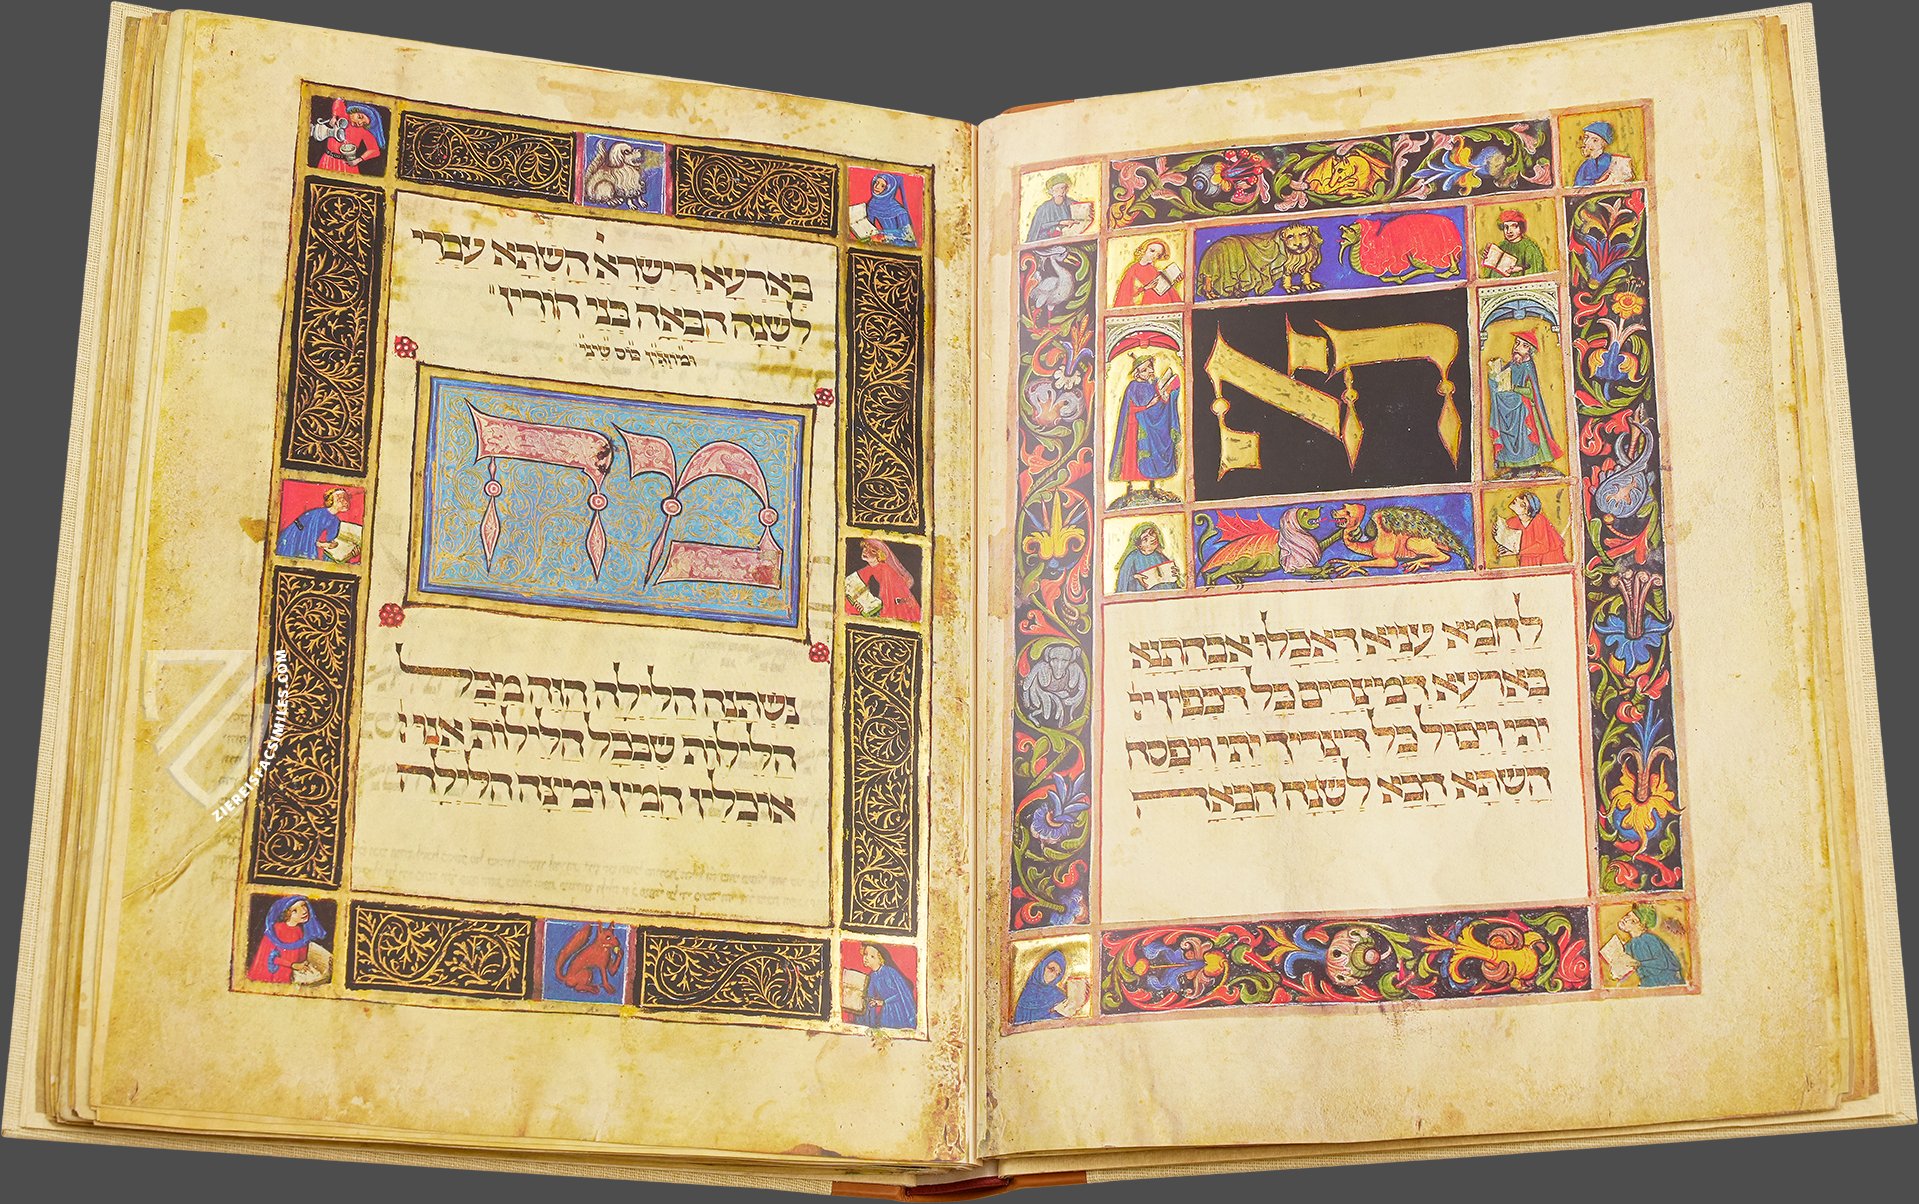 הא
לחמא עניא דאכלו אבהתנא
בארעא דמצרים כל דכפין
יתי וייכול כל דצריך יתי ויפסח
השתא הכא לשנה הבאה
בארעא דישרא השתא עבדי
לשנה הבאה בני חורין
ומוזגין כוס שיני
מה
נשתנה הלילה הזה מכל
הלילות שבכל הלילות אנו
אוכלין חמץ ומצה הלילה
ZIEREISFACSIMILES.COM